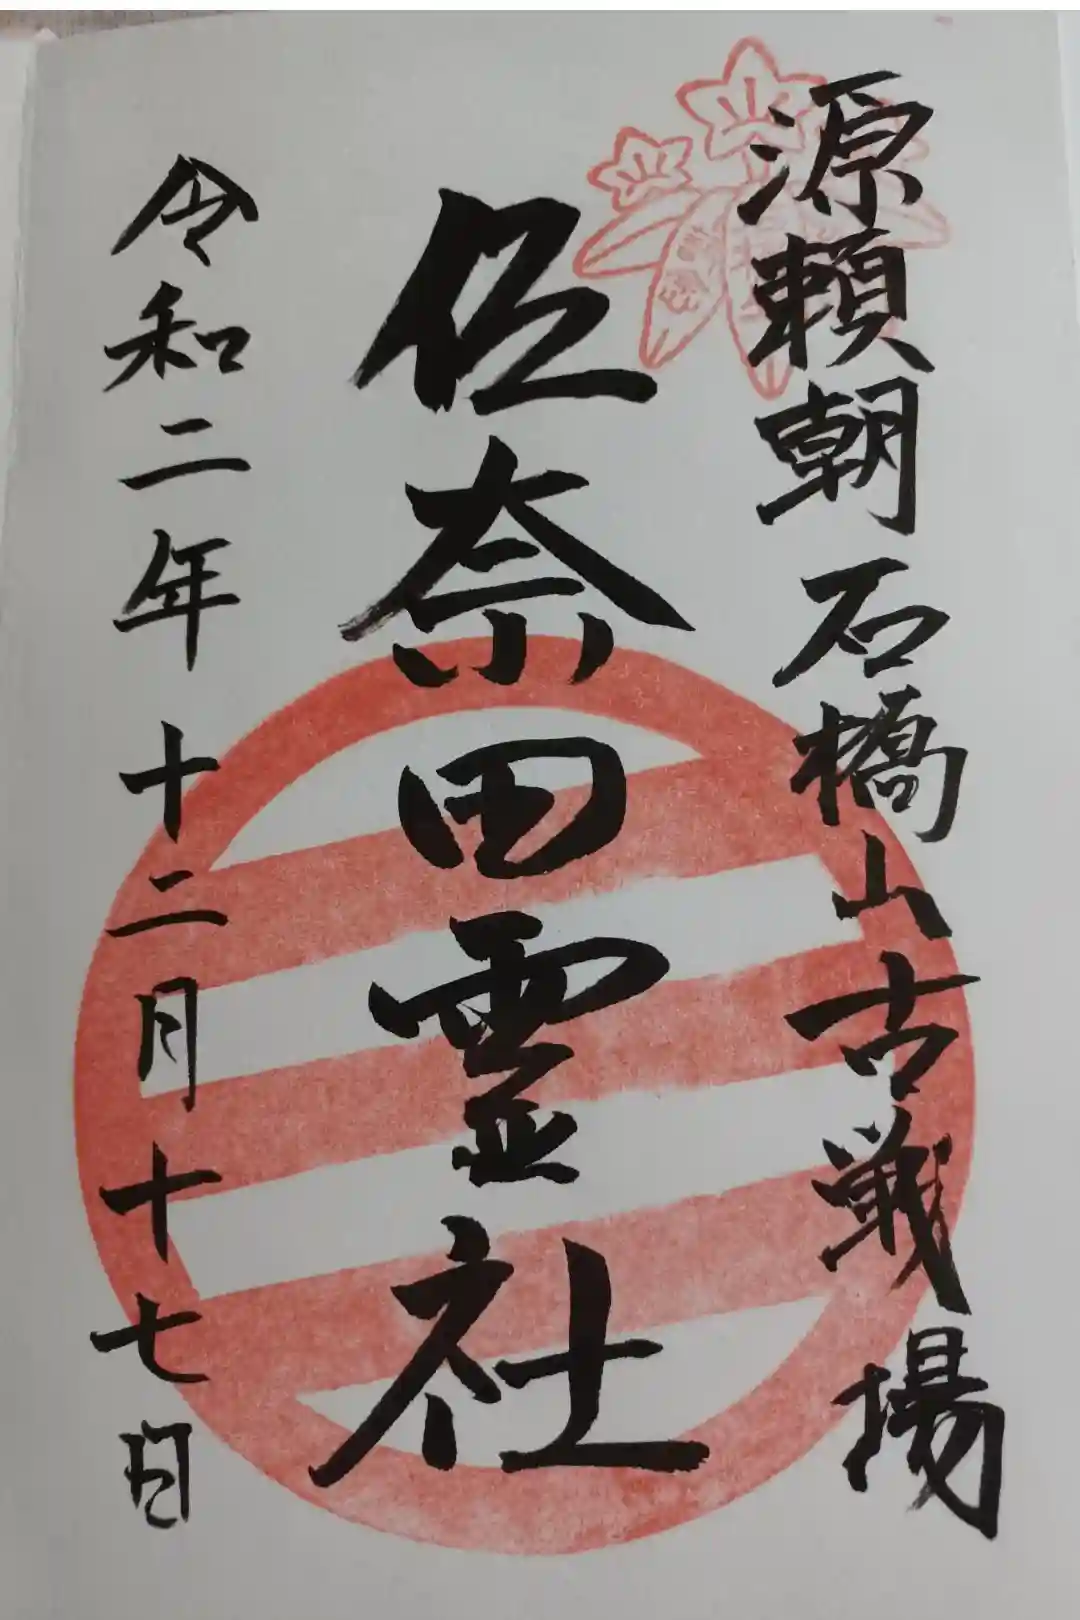 源頼朝石橋山古戦場
佐奈田霊社
令和二年十二月十七日